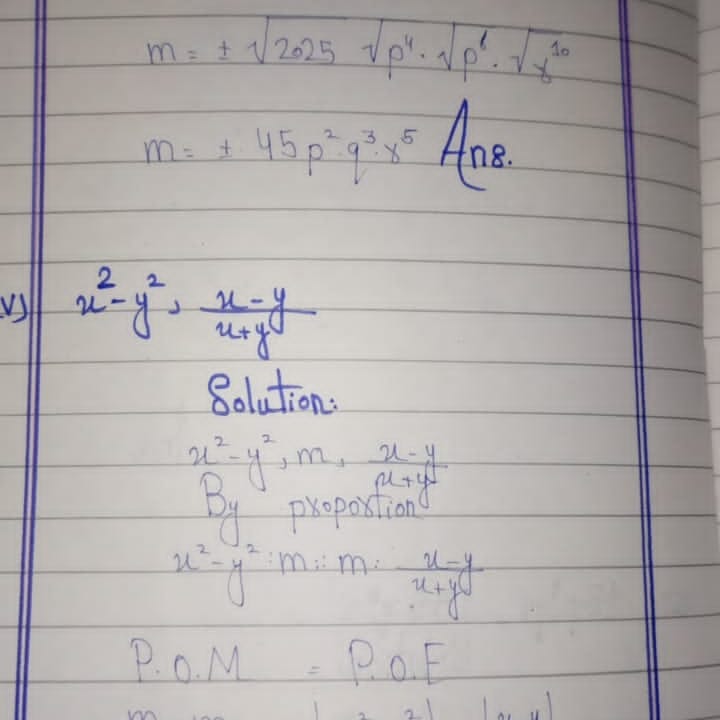 m = ± √2025 √p⁴ · √p⁶ · √r¹⁰
m = ± 45 p² · q³ · r⁵ Ans.
v) x² - y² , (x - y)/(x + y)
Solution:
x² - y² , m , (x - y)/(x + y)
By proportion
x² - y² : m :: m : (x - y)/(x + y)
P.o.M = P.o.E